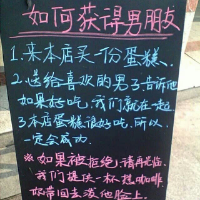 如何获得男朋友
1.来本店买一份蛋糕.
2.送给喜欢的男子告诉他
如果好吃,我们就在一起
3本店蛋糕很好吃,所以
一定会成功.
※如果被拒绝,请再光临.
我们提供一杯热咖啡
帮带回去泼他脸上.